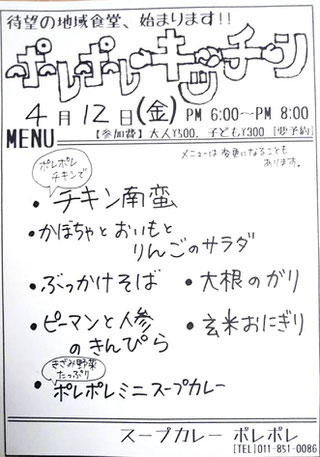 待望の地域食堂、始まります!!
ポレポレ・キッチン
4月12日(金) PM 6:00~PM 8:00
MENU 【参加費】大人¥500. 子ども¥300 [要予約]
メニューは変更になることも
あります。
ポレポレ
チキンで
・チキン南蛮
・かぼちゃとおいもと
りんごのサラダ
・ぶっかけそば ・大根のガリ
・ピーマンと人参
のきんぴら
・玄米おにぎり
きざみ野菜
たっぷり
・ポレポレミニスープカレー
スープカレー ポレポレ
[TEL]011-851-0086